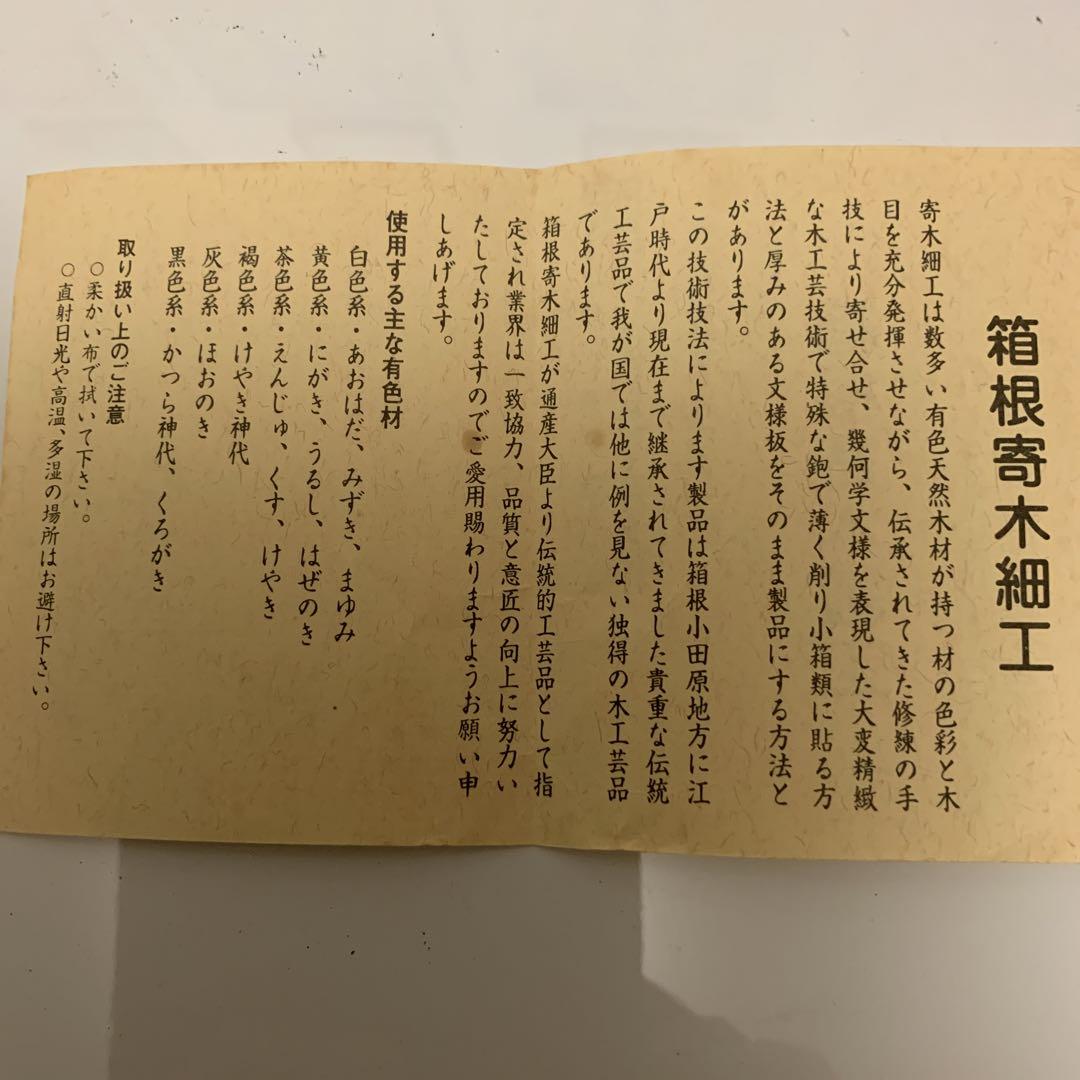 箱根寄木細工
寄木細工は数多い有色天然木材が持つ材の色彩と木
目を充分発揮させながら、伝承されてきた修練の手
技により寄せ合せ、幾何学文様を表現した大変精緻
な木工芸技術で特殊な鉋で薄く削り小箱類に貼る方
法と厚みのある文様板をそのまま製品にする方法と
があります。
この技術技法によります製品は箱根小田原地方に江
戸時代より現在まで継承されてきました貴重な伝統
工芸品で我が国では他に例を見ない独得の木工芸品
であります。
箱根寄木細工が通産大臣より伝統的工芸品として指
定され業界は一致協力、品質と意匠の向上に努力い
たしておりますのでご愛用賜わりますようお願い申
しあげます。
使用する主な有色材
白色系・あおはだ、みずき、まゆみ
黄色系・にがき、うるし、はぜのき
茶色系・えんじゅ、くす、けやき
褐色系・けやき神代
灰色系・ほおのき
黒色系・かつら神代、くろがき
取り扱い上のご注意
○柔かい布で拭いて下さい。
○直射日光や高温、多湿の場所はお避け下さい。